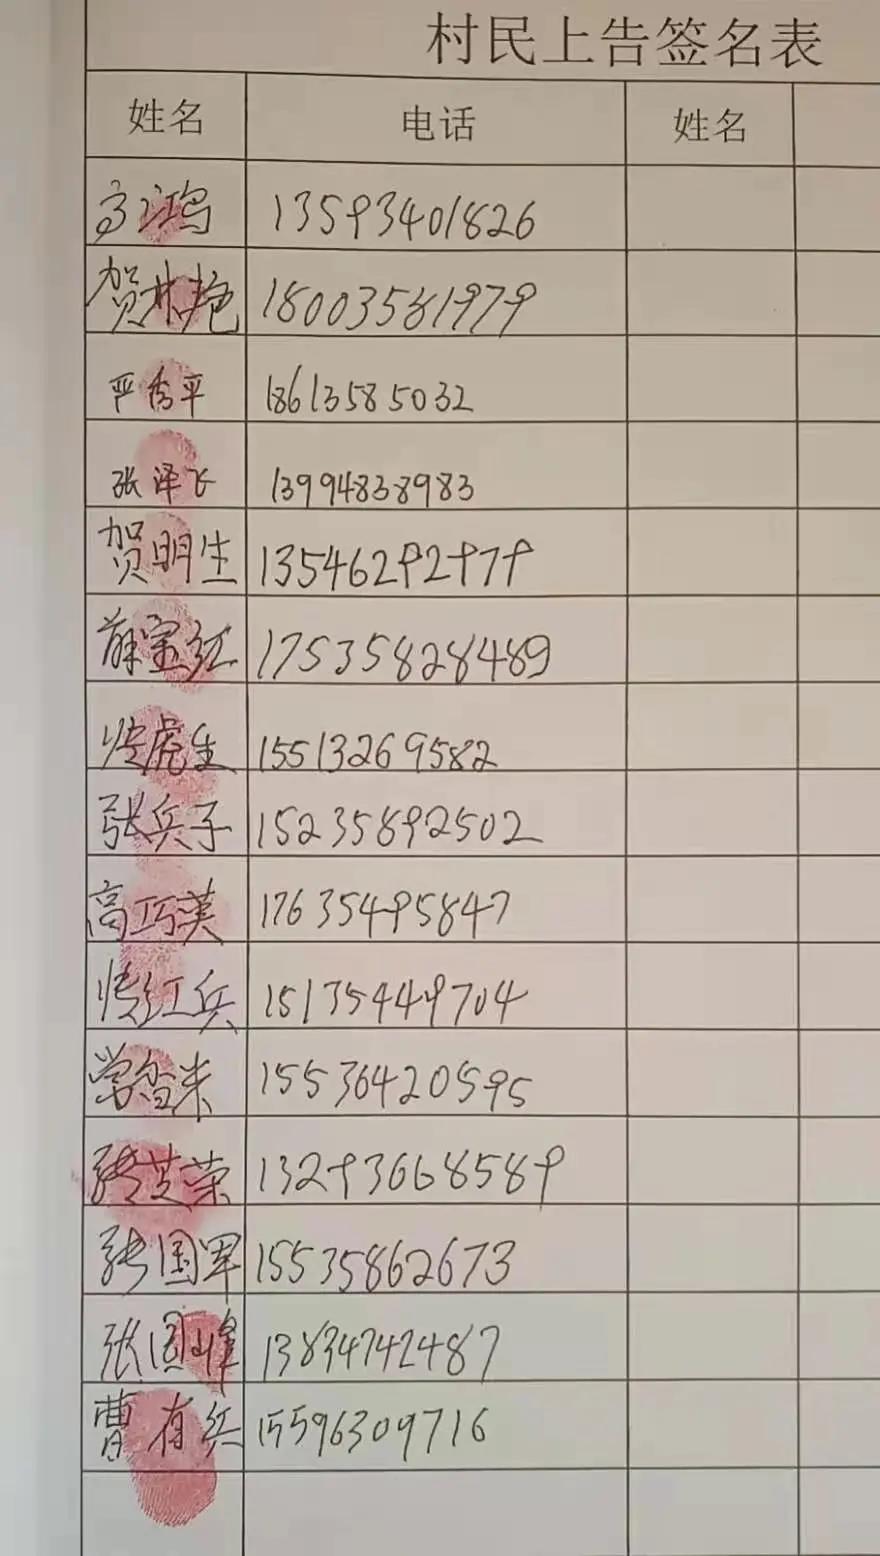 村民上告签名表
姓名 电话 姓名
高鸿 13593401826
贺林艳 18003581979
严秀平 18613585032
张泽飞 13994838983
贺明生 13546292979
薛宝红 17535828489
虎生 15513269582
张兵子 15235892502
高巧英 17635495847
红兵 15135449704
常香米 15536420595
张芝荣 13293668589
张国军 15535862673
张国峰 13834742487
曹有兵 15596309716